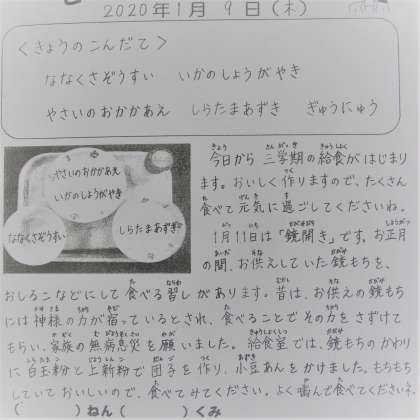 2020年1月9日(木)
<きょうのこんだて>
ななくさぞうすい いかのしょうがやき
やさいのおかかあえ しらたまあずき ぎゅうにゅう
やさいのおかかあえ
いかのしょうがやき
ななくさぞうすい
しらたまあずき
今日から三学期の給食がはじまり
ます。おいしく作りますので、たくさん
食べて元気に過ごしてくださいね。
1月11日は「鏡開き」です。お正月
の間、お供えしていた鏡もちを、
おしるこなどにして食べる習しがあります。昔は、お供えの鏡もち
には神様の力が宿っているとされ、食べることでその力をさずけて
もらい、家族の無病息災を願いました。給食室では、鏡もちのかわり
に白玉粉と上新粉で団子を作り、小豆あんをかけました。もちもち
していておいしいので、食べてみてください。よく噛んで食べてくださいね。
( )ねん( )くみ